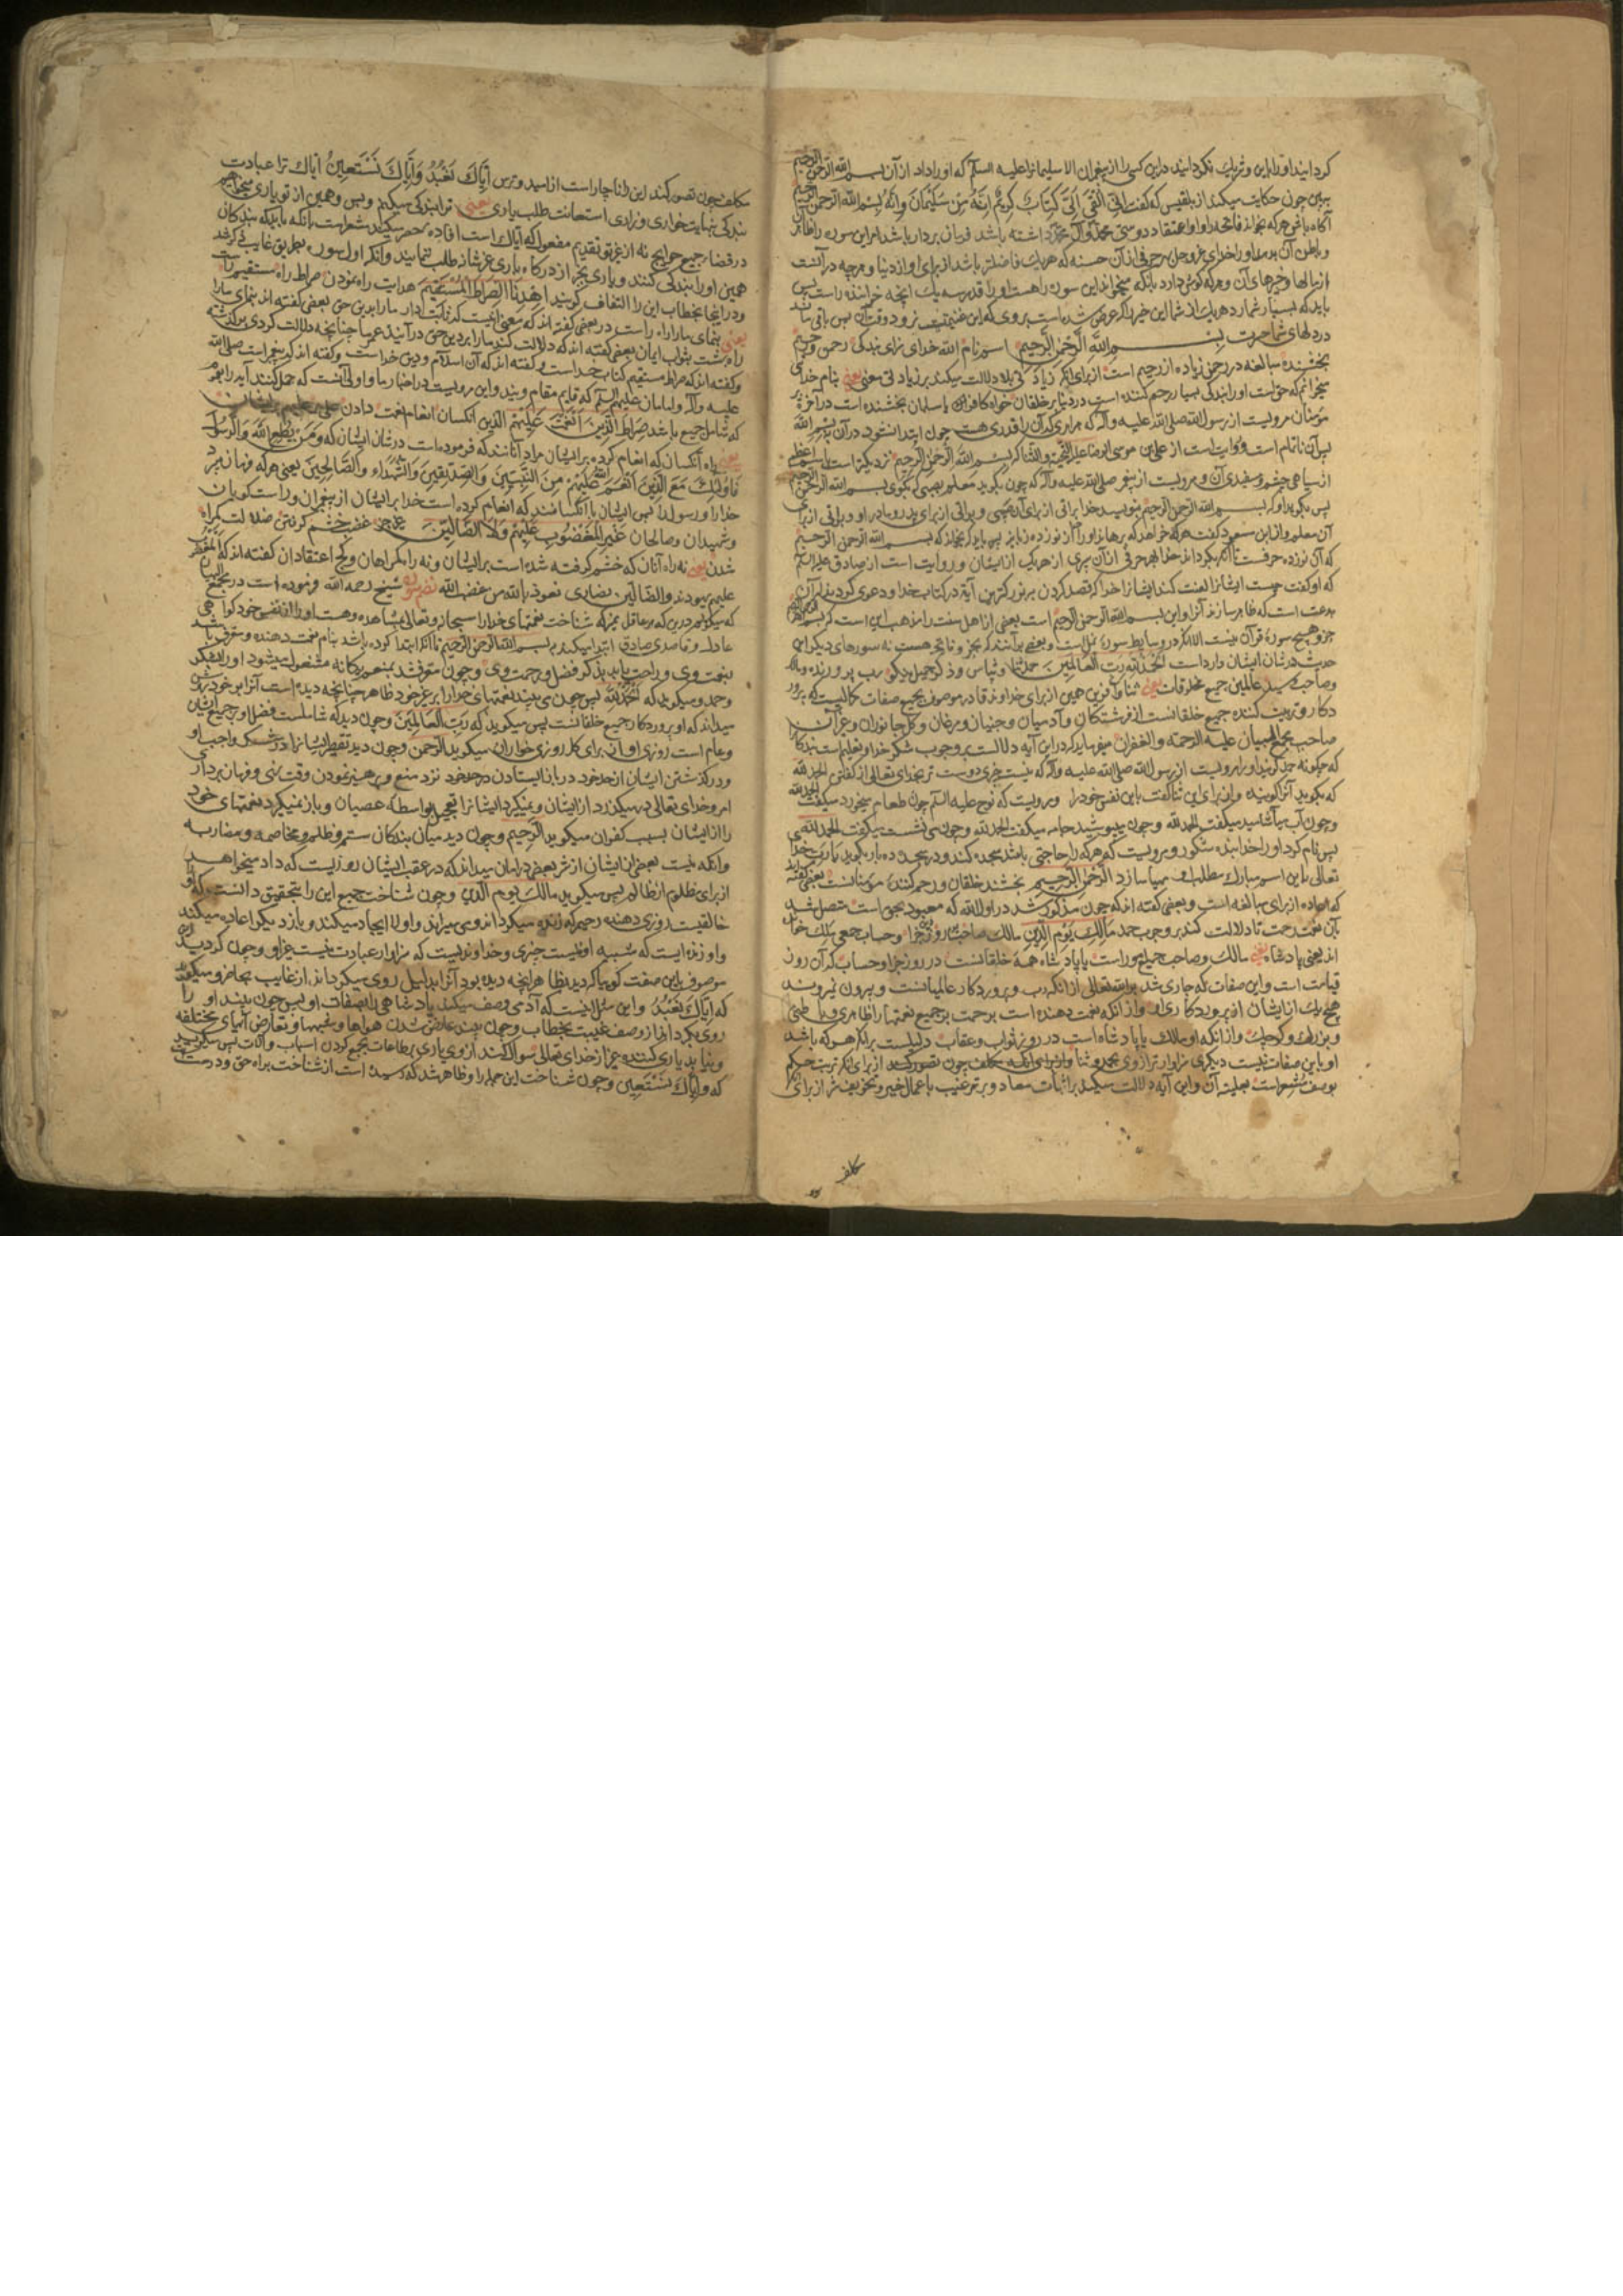 کردانید او را باین و شریک نکردانید درین کسی را از پیغمبران الا سلیمانرا علیه السلم که او را داد از آن بسم الله الرحمن الرحیم
برین چون حکایت میکند از بلقیس که گفت انی القی الی کتاب کریم انه من سلیمان وانه بسم الله الرحمن الرحیم
آکاه باش هر که بخواند فاتحه را و او اعتقاد دوستی محمد و آل محمد داشته باشد فرمان بردار باشد امر این سوره را ظاهر
و باطن آن بدهد او را خدای عزوجل بهر حرفی از آن حسنه که هر یک فاضلتر باشد از برای او از دنیا و هرچه در آنست
از مالها و خیرهای آن و هر که کوش دارد بآنکه میخواند این سوره را هست او را قدر سه یک آنچه خواننده راست پس
باید که بسیار شمارد هر یک از شما این خیر را که عرض شده است بروی که این غنیمتیست نرود وقت آن پس باقی ماند
در دلهای شما حسرت بسم الله الرحمن الرحیم اسم نام الله خدای سزای بندکی رحمن و رحیم
بخشنده مبالغه در رحمن زیاده از رحیم است از برای آنکه زیادتی بنا دلالت میکند بر زیادتی معنی یعنی بنام خدای
میخوانم که حق است او را بندکی بسیار رحم کننده است در دنیا بر خلقان خواه کافران یا مسلمان بخشنده است در آخرة بر
مؤمنان مرویست از رسول الله صلی الله علیه وآله که هر امری که آن را قدری هست چون ابتدا نشود در آن به بسم الله
پس آن ناتمام است و روایت است از علی بن موسی الرضا علیه التحیة والثنا که بسم الله الرحمن الرحیم نزدیکتر است باسم اعظم
از سیاهی چشم بسفیدی آن و مرویست از پیغمبر صلی الله علیه وآله که چون بکوید معلم بصبی که بکوی بسم الله الرحمن الرحیم
پس بکوید او که بسم الله الرحمن الرحیم بنویسد خدا براتی از برای آن صبی و براتی از برای پدر و مادر او و براتی از برای
آن معلم و از ابن مسعود که گفت هر که خواهد که برهاند او را از نوزده زبانیه پس باید که بخواند که بسم الله الرحمن الرحیم
که آن نوزده حرفست تا آنکه بکرداند خدا بهر حرفی از آن سپری از هر یک از ایشان و روایت است از صادق علیه السلم
که او گفت چیست ایشانرا لعنت کند ایشانرا خدا که قصد کردن بر بزرکترین آیة در کتاب خدا و دعوی کردند که آن
بدعت است که ظاهر سازند آنرا و این بسم الله الرحمن الرحیم است بعضی از اهل سنت را مذهب این است که بسم الله
جزو هیچ سورۀ قرآن نیست الا که در وسایط سوره نمل است و بعضی برآنند که بجز و فاتحه هست نه سورهای دیکر این
حدیث در شان ایشان وارد است الحمد لله رب العالمین حمد ثنا و سپاس و ذکر جمیل و نیکو رب پرورنده و مالک
وصاحب و سید عالمین جمیع مخلوقات یعنی ثنا و آفرین همین از برای خداوند قادر موصوف بجمیع صفات کمالیست که پرور
دکار و تربیت کننده جمیع خلقانست از فرشتکان و آدمیان و جنیان و مرغان و کل جانوران و غیر آن
صاحب مجمع البیان علیه الرحمة والغفران میفرماید که در این آیه دلالت بر وجوب شکر خدا و تعلیم است بندکانرا
که چکونه حمد کویند او را مرویست از رسول الله صلی الله علیه وآله که نیست چیزی دوست تر بخدای تعالی از گفتن الحمد لله
که بکوید آنرا کوینده و از برای این ثنا گفت باین نفس خود را و مرویست که نوح علیه السلم چون طعام میخورد میکفت الحمد لله
و چون آب میآشامید میکفت الحمد لله و چون میپوشید جامه میکفت الحمد لله و چون می نشست میکفت الحمد لله
پس نام کرد او را خدا بنده شکور و مرویست که هر که را حاجتی باشد سجده کند و در سجده ده بار بکوید یارب خدا
تعالی باین اسم مبارک مطلب او مهیا سازد الرحمن الرحیم بخشنده خلقان و رحم کننده مؤمنانست بعضی گفته اند
که اعاده از برای مبالغه است و بعضی گفته اند که چون مذکور شد در اول الله که معبود بحق است متصل شد
بآن نعمت رحمت تا دلالت کند بر وجوب حمد مالک یوم الدین مالک صاحب روز جزا و حساب جمعی ملک خوانده
اند یعنی پادشاه یعنی مالک و صاحب جمیع امور است یا پادشاه همۀ خلقانست در روز جزا و حساب که آن روز
قیامت است و این صفات که جاری شد بر الله تعالی از آنکه رب و پروردکار عالمیانست و بیرون نمیروند
هیچ یک از ایشان از پروردکاری او و از آنکه نعمت دهنده است برحمت بر جمیع نعمتها را ظاهری و باطنی
و بزرک و کوچک و از آنکه او مالک یا پادشاه است در روز ثواب و عقاب دلیلست بر آنکه هر که باشد
او باین صفات نیست دیکری سزاوارتر از وی بحمد و ثنا و از برای آنکه مکلف چون تصور کند از برای آنکه ترتب حکم
بوصف مشعر است بعلیت آن و این آیه دلالت میکند بر اثبات معاد و بر ترغیب باعمال خیر و تخویف شر از برای آنکه
مکلف
مکلف چون تصور کند این را ناچار است از امید و ترس ایاک نعبد وایاک نستعین ایاک ترا عبادت
بندکی نهایت خواری و زاری استعانت طلب یاری یعنی ترا بندکی میکنیم و بس و همین از تو یاری میخواهیم
در قضاء جمیع حوایج نه از غیر تو تقدیم مفعول که ایاک است افادۀ حصر میکند مشعر است بآنکه باید که بندکان
همین او را بندکی کنند و یاری بجز از درکاه باری عز شانه طلب ننمایند و آنکه اول سوره بطریق غایب ذکر شد
و در اینجا بخطاب این را التفات کویند اهدنا الصراط المستقیم هدایت راه نمودن صراط راه مستقیم راست
یعنی بنمای ما را راه راست و بعضی گفته اند که معنی اینست که ثابت دار ما را بر دین حق بعضی گفته اند بنمای ما را
راه بهشت بثواب ایمان بعضی گفته اند که دلالت کند ما را بر دین حق در آینده عمر ما چنانچه دلالت کردی بر گذشته
و گفته اند که صراط مستقیم کتاب خداست و گفته اند که آن اسلام و دین خداست و گفته اند که پیغمبر است صلی الله
علیه وآله و امامان علیهم السلم که قایم مقام ویند و این مرویست در اخبار ما و اولی آنست که حمل کنند آیه را بعموم
که شامل جمیع باشد صراط الذین انعمت علیهم الذین آنکسان انعام نعمت دادن علی بر علیهم بر ایشان
یعنی راه آنکسان که انعام کردۀ بر ایشان مراد آنانند که فرموده است در شان ایشان که ومن یطع الله والرسول
فاولئک مع الذین انعم الله علیهم من النبیین والصدیقین والشهداء والصالحین یعنی هر که فرمان برد
خدا را و رسول را پس ایشان با آنکسانند که انعام کرده است خدا بر ایشان از پیغمبران و راست کویان
و شهیدان و صالحان غیر المغضوب علیهم ولا الضالین غیر جز غضب خشم کرفتن ضلالت کمراه
شدن یعنی نه راه آنان که خشم کرفته شده است بر ایشان و نه راه کمراهان و کج اعتقادان گفته اند که المغضوب
علیهم یهودند والضالین نصاری نعوذ بالله من غضب الله شیخ رحمه الله فرموده است در مجمع البیان
که میکوئیم درین که هر عاقل ممیز که شناخت نعمتهای خدا را سبحانه و تعالی مشاهده و هست او را از نفس خود کواهی
عادل و قاصدی صادق ابتدا میکند به بسم الله الرحمن الرحیم تا آنکه ابتدا کرده باشد بنام نعمت دهنده و معترف باشد
بنعمت وی و راحت یابد بذکر فضل و رحمت وی و چون معترف شد بمنعم یکانه مشغول میشود او را بشکر
وحمد و میکوید که الحمد لله پس چون می بیند نعمتهای خدا را بر غیر خود ظاهر چنانچه دیده است آنرا بر خود روشن
میداند که او پروردکار جمیع خلقانست پس میکوید که رب العالمین و چون دید که شاملست فضل او بر جمیع آفریدن
و عام است روزی او آن برای کل روزی خواران میکوید الرحمن و چون دید تقصیر ایشانرا در شکر واجب او
و درکذشتن ایشان از حد خود در باز ایستادن در حد خود نزد منع و پرهیز نمودن وقت نهی و فرمان بردار
امر و خدای تعالی در میکذرد از ایشان و نمیکیرد ایشانرا بتعجیل بواسطه عصیان و باز نمیکیرد نعمتهای خود
را از ایشان بسبب کفران میکوید الرحیم و چون دید میان بندکان ستم و ظلم و مخاصمه و مضاربه
و آنکه نیست بعضی از ایشان از شر بعضی در امان میداند که در عقب ایشان روزیست که داد میخواهد
از برای مظلوم از ظالم پس میکوید مالک یوم الدین و چون شناخت جمیع این را بتحقیق دانست که او
خالقیست روزی دهنده رحیم که زنده میکرداند و می میراند و اولا ایجاد میکند و باز دیکر اعاده میکند
و او زنده ایست که شبیه او نیست چیزی و خداوندیست که سزاوار عبادت نیست غیر او و چون کردید این
موصوف باین صفت کوییا کردید نظاهر آنچه دیده بود آنرا بدلیل روی میکرداند از غایب بحاضر و میکوید
که ایاک نعبد و این مثل اینست که آدمی وصف میکند پادشاهی را بصفات او پس چون بیند او را
روی بکرداند از وصف غیبت بخطاب و چون بیند عارض شدن هواها و شبهها و تعارض آرای مختلفه
و نیابد یاری کننده غیر از خدای تعالی سوال کند از وی یاری بر طاعات بجمع کردن اسباب و آلات پس میکوید
که وایاک نستعین و چون شناخت این جمله را و ظاهر شد که رسیده است از شناخت براه حق و درست